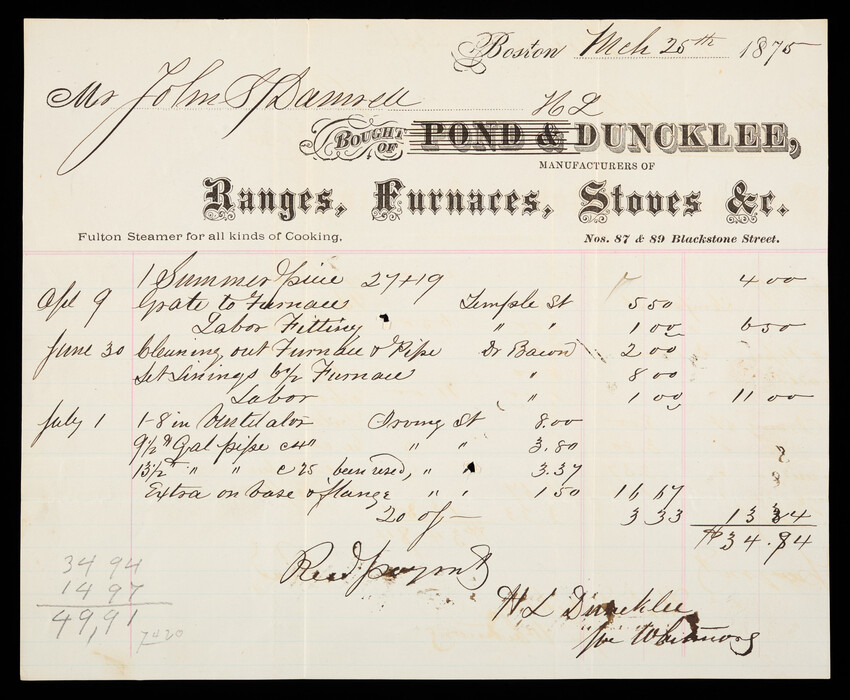 Boston Mch 25th 1875
Mr John S Damrell
H L
BOUGHT OF POND & DUNCKLEE,
MANUFACTURERS OF
Ranges, Furnaces, Stoves &c.
Fulton Steamer for all kinds of Cooking. Nos. 87 & 89 Blackstone Street.
1 Summer piece 27+19 4 00
Apl 9 Grate to Furnace Temple St 5 50
Labor Fitting " " 1 00 6 50
June 30 Cleaning out Furnace & Pipe Dr Bacon 2 00
Set Linings Furnace " 8 00
Labor " 1 00 11 00
July 1 1-8 in Ventilator Irving St 8.00
9½ " Gal pipe c40 " " 3.80
13½ " " " c25 been used, " " 3.37
Extra on base & flange " " 1 50 16 67
20 off 3 33 13 34
$34.84
Recd paymt
H L Duncklee
per Whitmore
34 94
14 97
49,91
7420